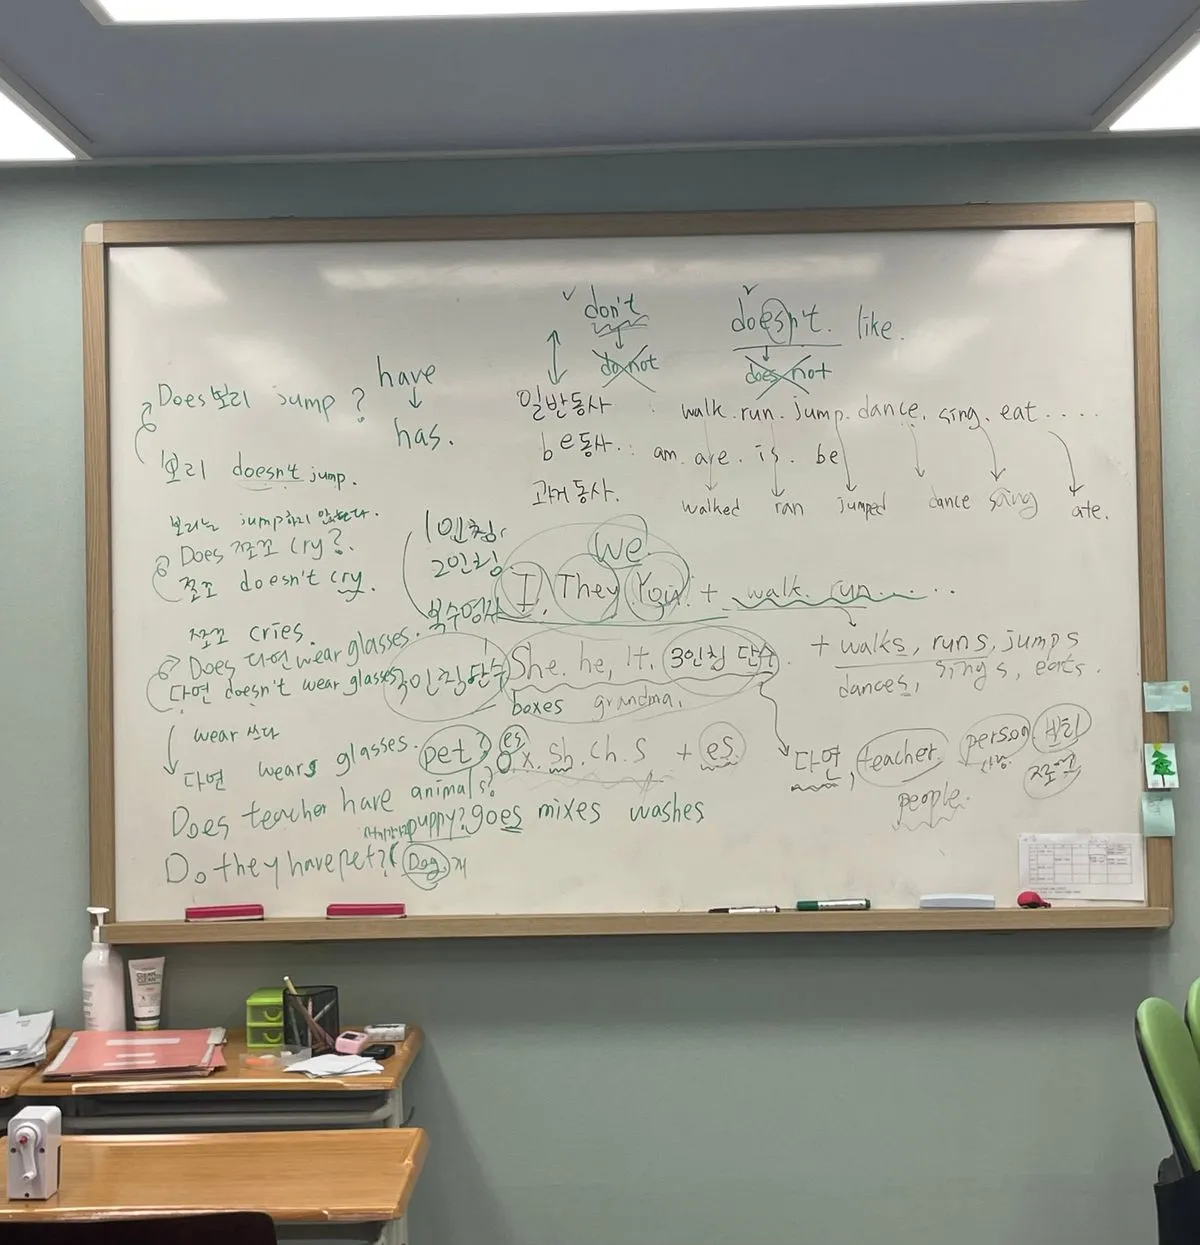 don't
doesn't. like.
do not
does not
have
has.
Does 보리 jump ?
보리 doesn't jump.
보리는 jump하지 않는다.
Does 쪼꼬 cry?
쪼꼬 doesn't cry.
쪼꼬 cries.
Does 다연 wear glasses.
다연 doesn't wear glasses
wear 쓰다
다연 wears glasses.
Does teacher have animals?
pet?
puppy?
Do they have pet? (Dog) 개
일반동사 : walk. run. jump. dance. sing. eat ....
be동사. : am. are. is. be
과거동사. walked ran jumped dance sang ate.
1인칭,
2인칭
복수명사
we
I, They You. + walk. run......
3인칭단수 She. he, It. 3인칭 단수.
boxes grandma.
+ walks, runs, jumps
dances, sings, eats.
es
o. x. sh. ch. s + es
goes mixes washes
다연, teacher. person 보리
사람
people.